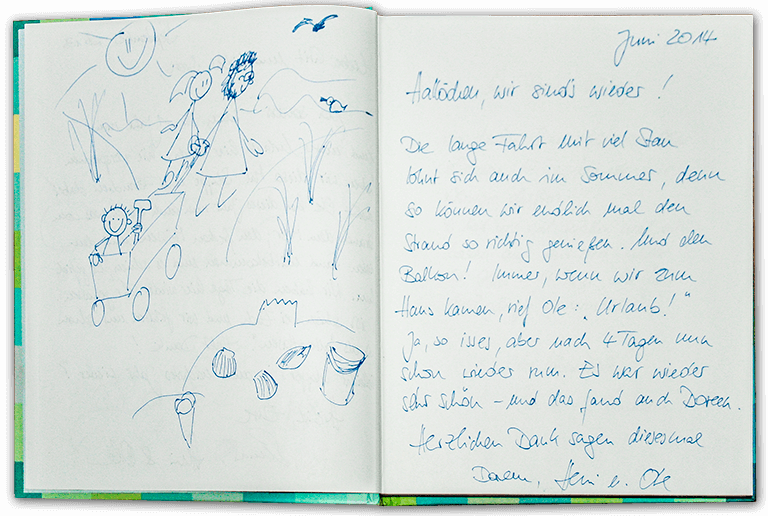 Juni 2014
Hallöchen, wir sind's wieder!
Die lange Fahrt mit viel Stau
lohnt sich auch im Sommer, denn
so können wir endlich mal den
Strand so richtig genießen. Und den
Balkon! Immer, wenn wir zum
Haus kamen, rief Ole: "Urlaub!"
Ja, so isses, aber nach 4 Tagen nun
schon wieder rum. Es war wieder
sehr schön - und das fand auch Doreen.
Herzlichen Dank sagen diesesmal
Doreen, u. Ole